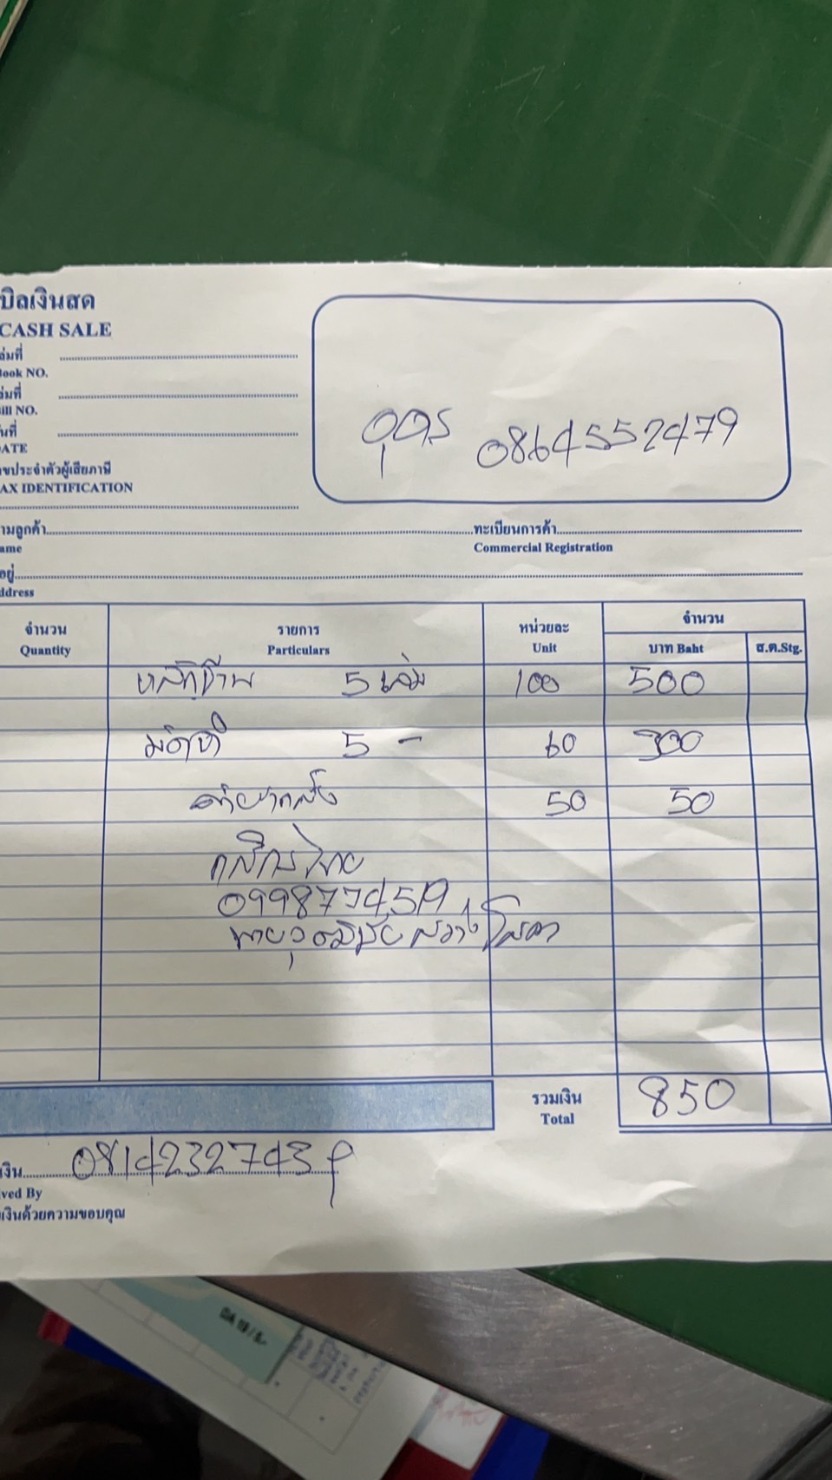 บิลเงินสด
CASH SALE
ล่มที่
Book NO.
ขที่
ill NO.
นที่
ATE
ขประจำตัวผู้เสียภาษี
AX IDENTIFICATION
อุดร 0864552479
ามลูกค้า ทะเบียนการค้า
ame Commercial Registration
อยู่
ddress
จำนวน รายการ หน่วยละ จำนวน
Quantity Particulars Unit บาท Baht ส.ต.Stg.
5 เล่ม 100 500
มัดหวี 5 - 60 300
ค่ายากล่อง 50 50
กสิกรไทย
นายวุฒิชัย สว่างโสดา
รวมเงิน 850
Total
เงิน 0814232743
ved By
เงินด้วยความขอบคุณ